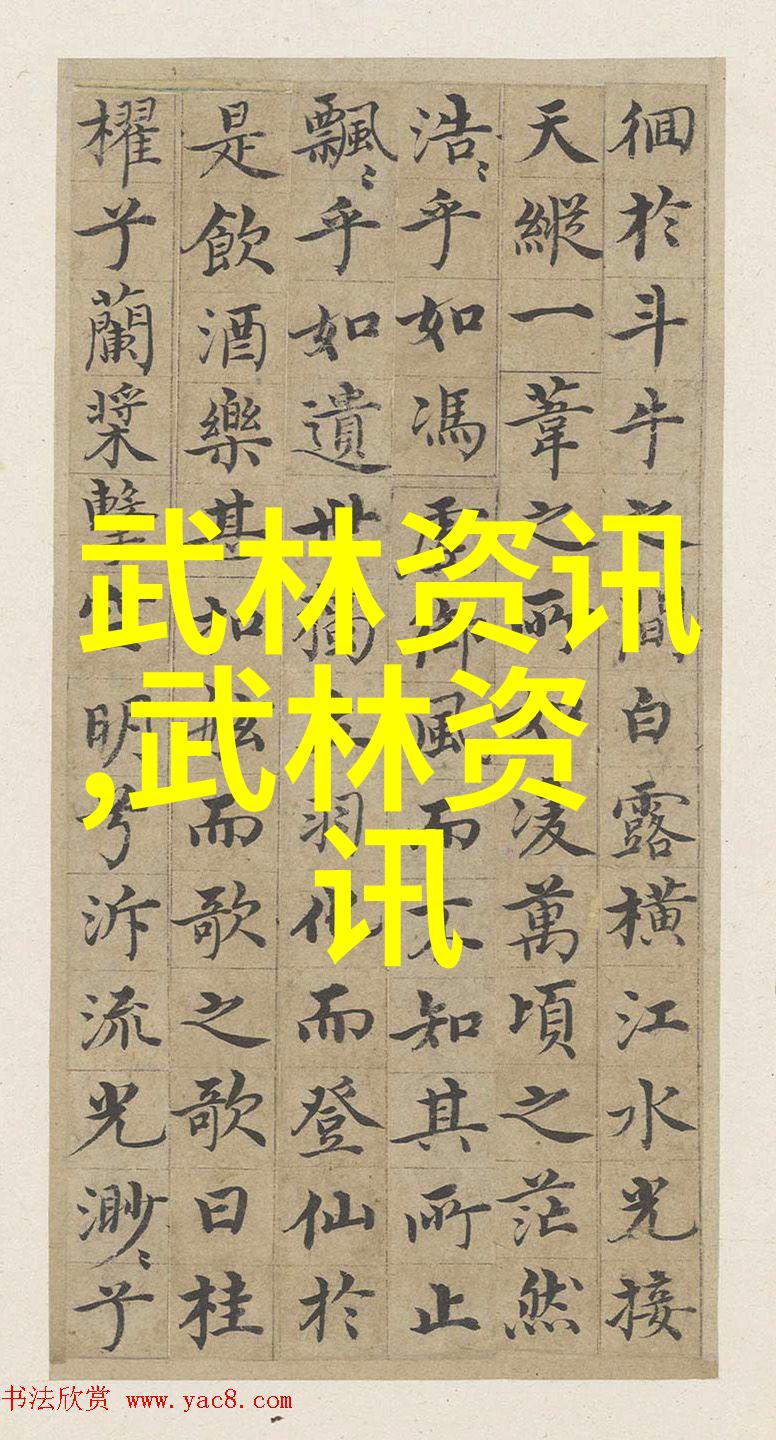 徊於斗牛之間白露橫江水光接
天縱一葦之所凌萬頃之茫然
浩〻乎如馮虛御風而不知其所止
飄〻乎如遺世獨立羽化而登仙於
是飲酒樂甚扣舷而歌之歌曰桂
櫂兮蘭槳擊空明兮泝流光渺〻兮
武林资讯
,武林资
讯
书法欣赏 www.yac8.com